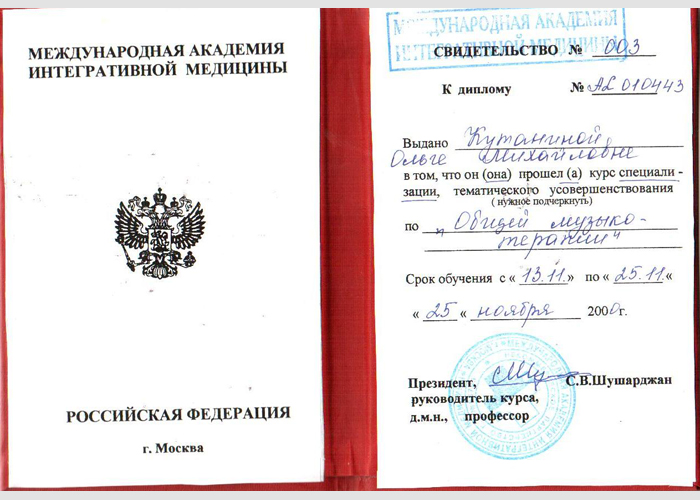 МЕЖДУНАРОДНАЯ АКАДЕМИЯ
ИНТЕГРАТИВНОЙ МЕДИЦИНЫ
РОССИЙСКАЯ ФЕДЕРАЦИЯ
г. Москва
МЕЖДУНАРОДНАЯ АКАДЕМИЯ
ИНТЕГРАТИВНОЙ МЕДИЦИНЫ
СВИДЕТЕЛЬСТВО № 003
К диплому № АL 010443
Выдано Кутаниной
Ольге Михайловне
в том, что он (она) прошел (а) курс специали -
зации, тематического усовершенствования
( нужное подчеркнуть)
по „ Общей музыко-
терапии"
Срок обучения с « 13.11.» по « 25.11.«
« 25 « ноября 2000г.
Президент, С.В.Шушарджан
руководитель курса,
д.м.н., профессор